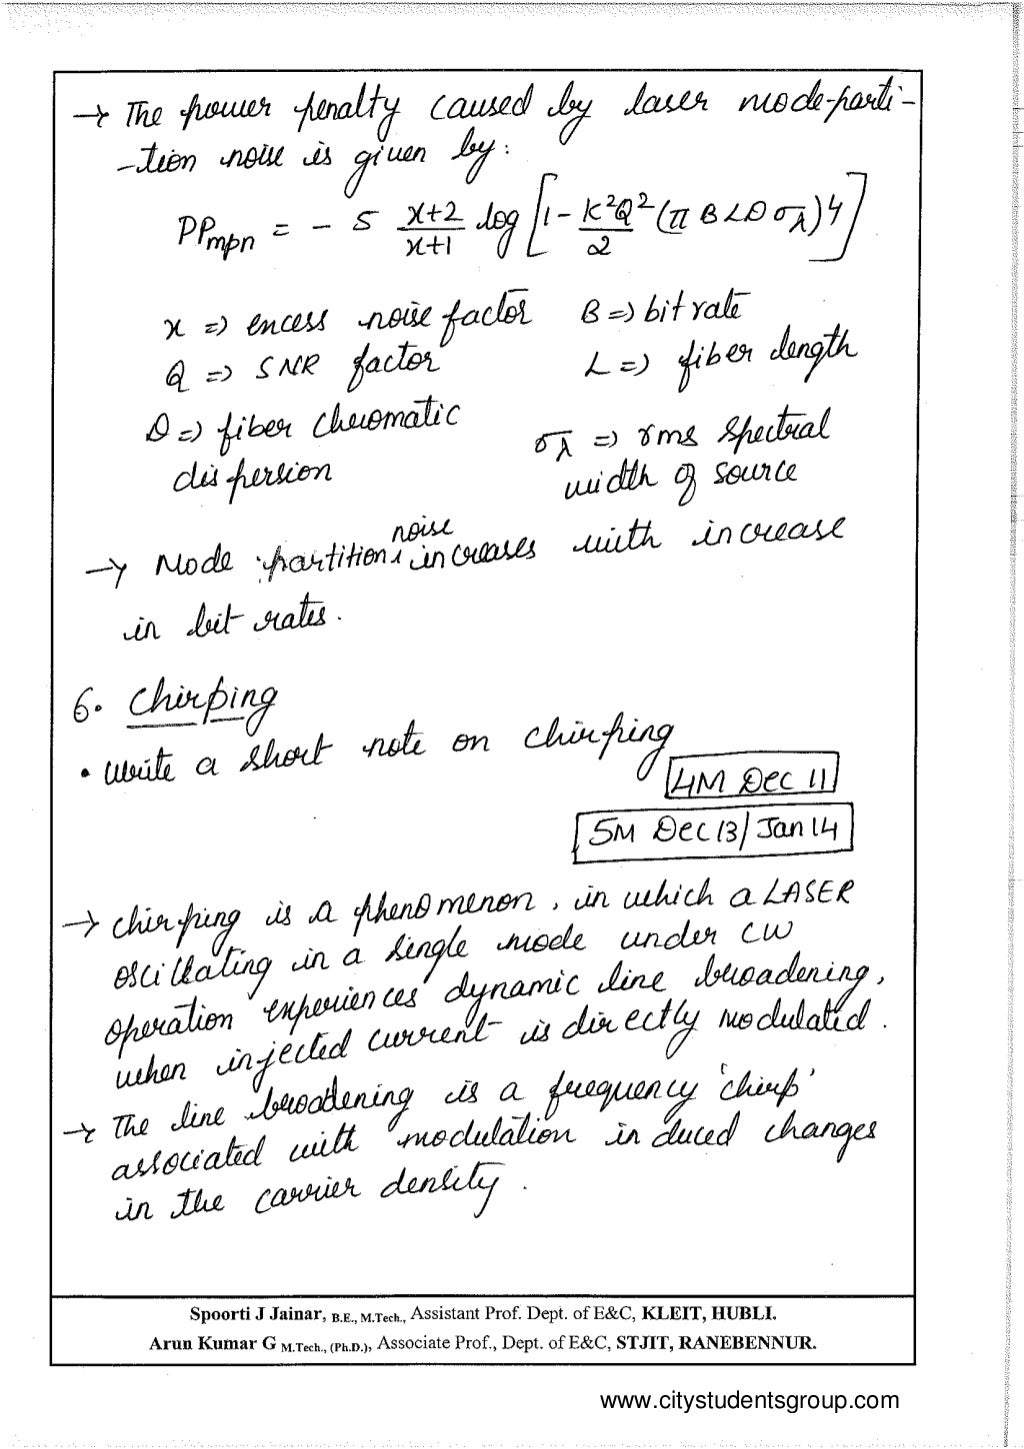 → The power penalty caused by laser mode-parti-
-tion noise is given by:
PPmpn = - 5 x+2/x+1 log [1 - K²Q²/2 (π B L D σλ)4]
x => excess noise factor B => bit rate
Q => SNR factor L => fiber length
D => fiber chromatic σλ => rms spectral
dispersion width of source
→ Mode partition noise increases with increase
in bit rates.
6. Chirping
• Write a short note on chirping
4M Dec 11
5M Dec 13/Jan 14
→ Chirping is a phenomenon, in which a LASER
oscillating in a single mode under CW
operation experiences dynamic line broadening,
when injected current is directly modulated.
→ The line broadening is a frequency 'chirp'
associated with modulation induced changes
in the carrier density.
Spoorti J Jainar, B.E., M.Tech., Assistant Prof. Dept. of E&C, KLEIT, HUBLI.
Arun Kumar G M.Tech., (Ph.D.), Associate Prof., Dept. of E&C, STJIT, RANEBENNUR.
www.citystudentsgroup.com